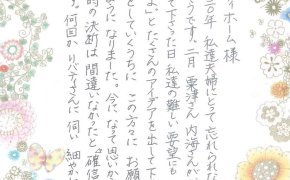 ィホーム 様
二〇年 私達夫婦にとって忘れられな
うです。二月 粟津さん 内海さんが
て下さった日 私達の難しい要望にも
よい、とたくさんのアイデアを出して下
としていくうちに この方々に お願
うになりました。今になって思いか
時の決断は間違いなかったと"確信
す。何回か リバティさんに 伺い 細やか